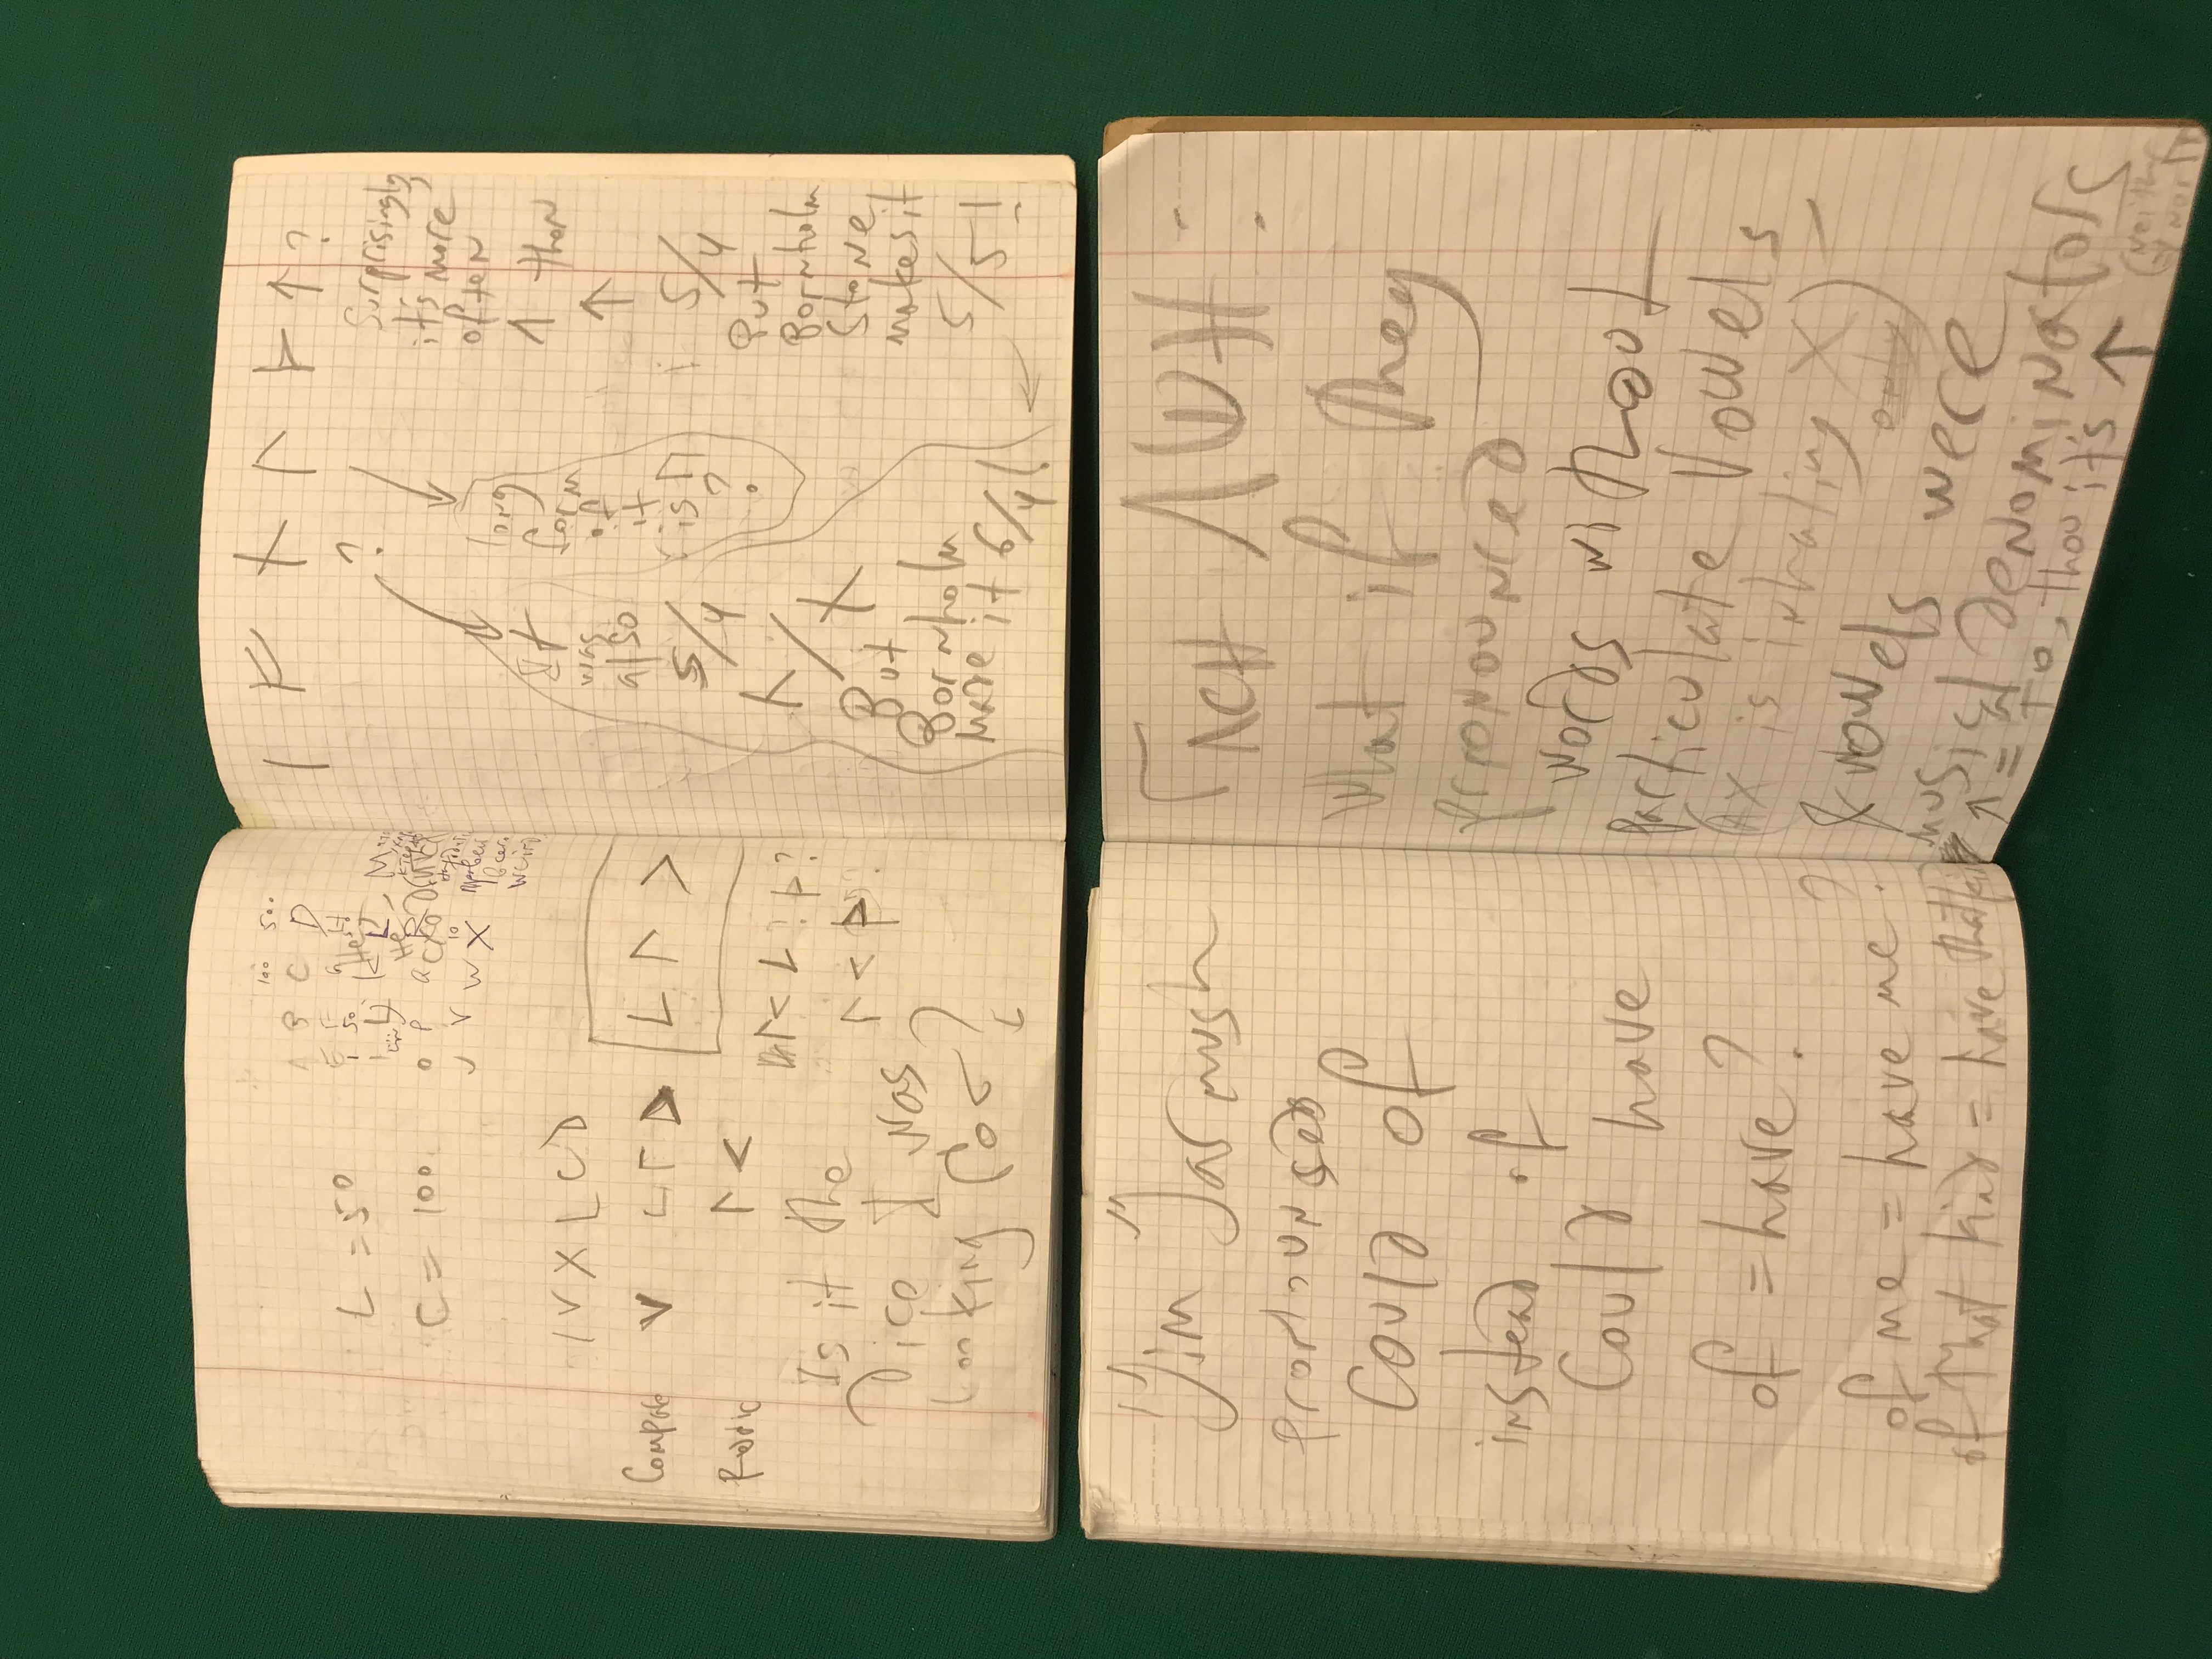 100 500
A B C D
E F G H
L = 50
C = 100
O P Q
10
U V W X
I V X L C D
Compare V L Γ D L Γ >
Runic Γ <
Is it the
Dice I was
looking for?
ᛁ ᚠ ᚾ ᛚ ᚦ ↑ ?
?
It
was
also
5/4
But
Bornholm
made it 6/4!
long
form
of
it
is
?
Surprisingly,
it's more
often
than
↑
5/4
But
Bornholm
Stone
makes it
5/5!
Jim Jarmush
pronounsed
Could of
instead of
Could have
of = have?
of me = have me?
of that kind = have that
What if they
pronounced
words without
particulate Vowels
(AX is inhaling X)
only
& vowels were
musical denominators
To, thou it's ↑
(neither